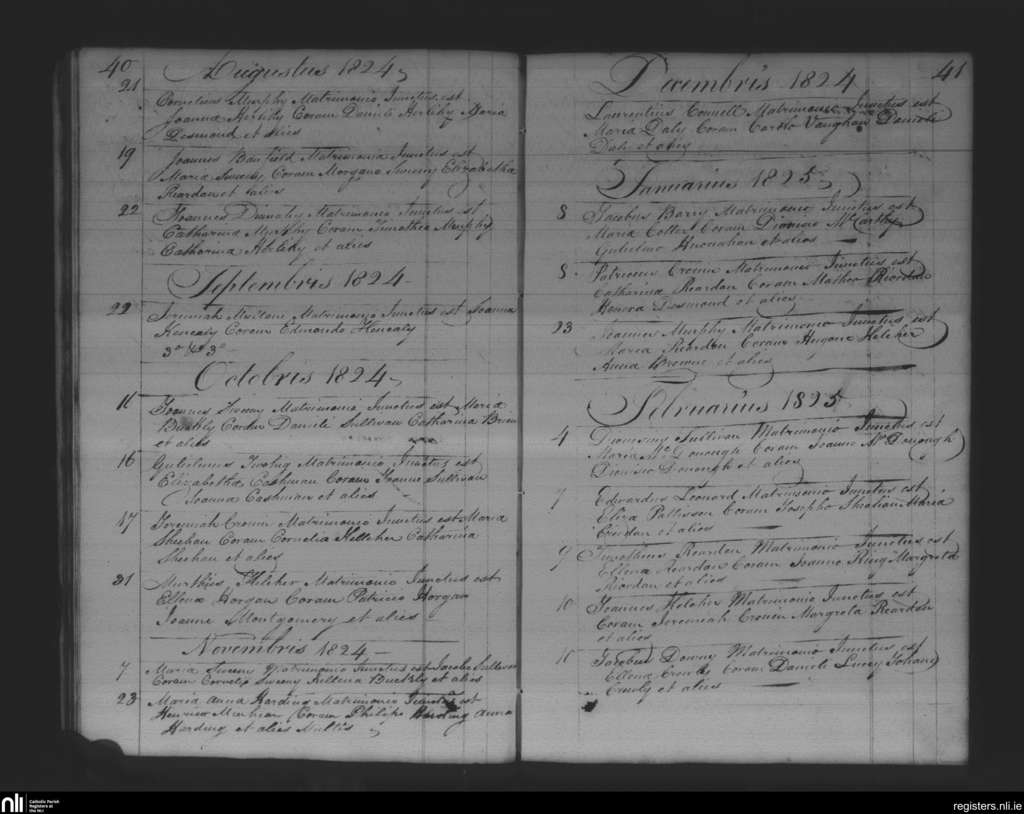 40
Augustus 1824
21
Cornelius Murphy Matrimonio Junctus est
Joanna Herlihy Coram Daniele Herlihy Maria
Desmond et alies
19
Joannes Banfield Matrimonio Junctus est
Maria Sweeny Coram Morgano Sweeny Elizabetha
Reardon et alies
22
Joannes Matrimonio Junctus est
Catharina Murphy Coram Timotheo Murphy
Catharina Herlihy et alies
Septembris 1824
22
Jeremiah Matrimonio Junctus est Joanna
Kenealy Coram Edmundo Kenealy
3o 3o
Octobris 1824
11
Joannes Sweeny Matrimonio Junctus est Maria
Buckly Coram Daniele Sullivan Catharina Brien
et alies
16
Gulielmus Twohig Matrimonio Junctus est
Elizabetha Cashman Coram Joanne Sullivan
Joanna Cashman et alies
17
Jeremiah Cronin Matrimonio Junctus est Maria
Sheehan Coram Cornelio Kelleher Catharina
Sheehan et alies
31
Kelcher Matrimonio Junctus est
Ellena Horgan Coram Patricio Horgan
Joanne Montgomery et alies
Novembris 1824
7
Maria Sweeny Matrimonio Junctus est Jacobo Sullivan
Coram Cornelio Sweeny Ellena Buckly et alies
23
Maria Anna Harding Matrimonio Junctus est
Henrico Coram Philipo Harding Anna
Harding et alies Multis
41
Decembris 1824
Laurentius Connell Matrimonio Junctus est
Maria Daly Coram Vaughan Daniele
Dale et alies
Januarius 1825
8
Jacobus Barry Matrimonio Junctus est
Maria Cotter Coram Dionisio McCarthy
Gulielmo Hnonahan et alios
8
Patricius Cronin Matrimonio Junctus est
Catharina Reardan Coram Matheo Reardan
Honora Desmond et alies
23
Joannes Murphy Matrimonio Junctus est
Maria Reardon Coram Eugene Kelcher
Anna Browne et alies
Februarius 1825
4
Dionisius Sullivan Matrimonio Junctus est
Maria McDonough Coram Joanne McDonough
Dionisio Donough et alies
7
Edwardus Leonard Matrimonio Junctus est
Eliza Pattison Coram Josepho Maria
et alies
9
Timotheus Reardon Matrimonio Junctus est
Ellena Reardan Coram Joanno Ring Margreta
Riordan et alies
10
Joannes Kelcher Matrimonio Junctus est
Coram Jeremeah Cronin Margreta Reardan
et alies
10
Jacobus Downy Matrimonio Junctus est
Ellena Crowly Coram Daniele Lucey
Crowly et alies
nli
Catholic Parish
Registers at
the NLI
registers.nli.ie